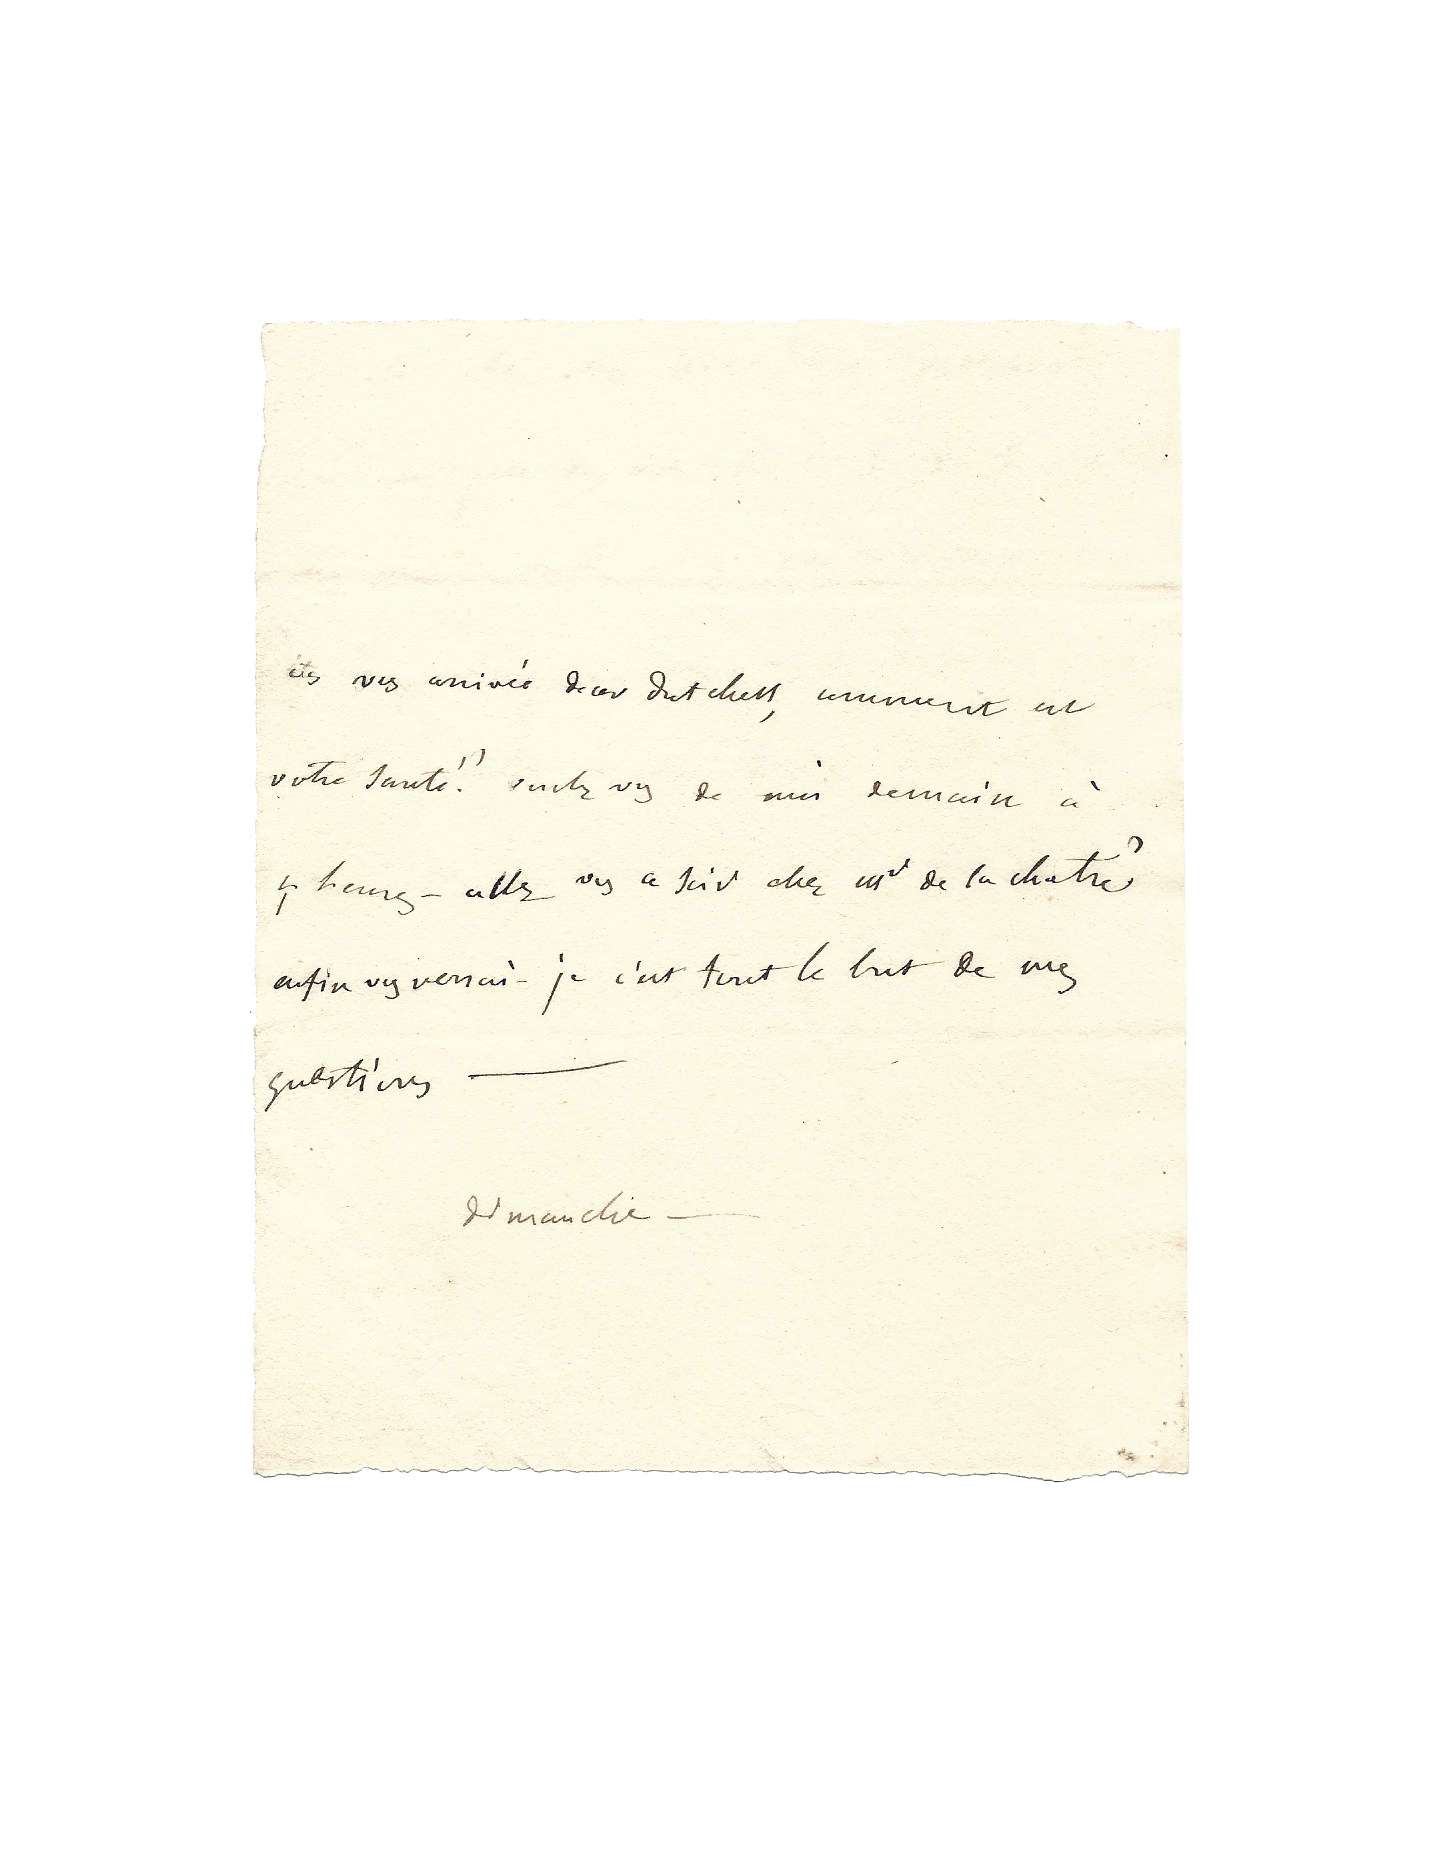 êtes vous arrivée dear dutchess, comment est
votre santé?? voulez vous de moi demain à
5 heures – allez vous ce soir chez Md de la chatre?
enfin vous verrai-je c'est tout le but de mes
questions —
dimanche —